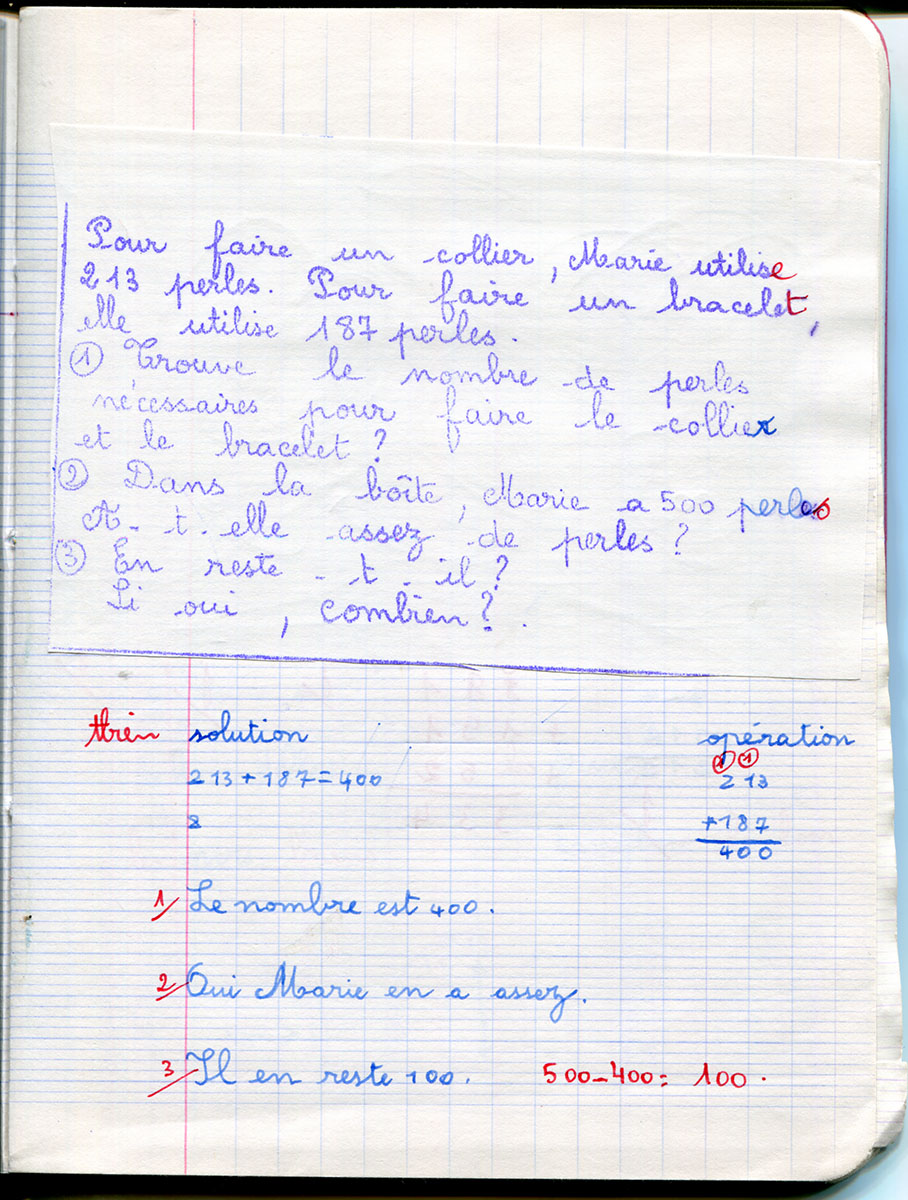 Pour faire un collier, Marie utilise
213 perles. Pour faire un bracelet,
elle utilise 187 perles.
① Trouve le nombre de perles
nécessaires pour faire le collier
et le bracelet ?
② Dans la boîte, Marie a 500 perles
A-t-elle assez de perles ?
③ En reste-t-il ?
Si oui, combien ?.
solution opération
① ①
213+187=400 213
+187
400
1/ Le nombre est 400.
2/ Oui Marie en a assez.
3/ Il en reste 100. 500-400= 100.